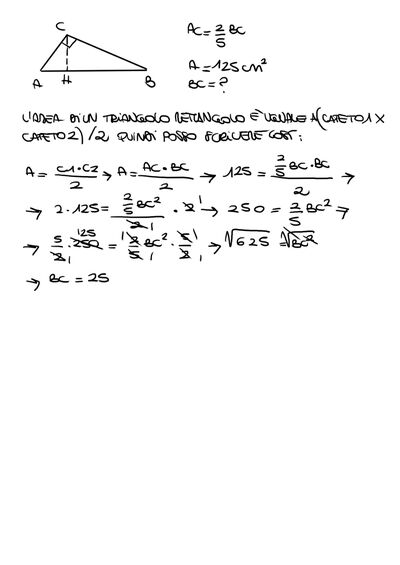 C
A
H
B
AC = 2/5 BC
A = 125 cm²
BC = ?
L'AREA DI UN TRIANGOLO RETTANGOLO È UGUALE A (CATETO1 X
CATETO2) /2 QUINDI POSSO SCRIVERE COSÌ:
A = C1·C2/2 → A = AC·BC/2 → 125 = 2/5 BC·BC/2 →
→ 2·125 = 2/5 BC²/2 1 · 2 1 → 250 = 2/5 BC² →
→ 5/2 1 · 250 125 = 1 2/5 1 BC² · 5 1/2 1 → √625 = √BC²
→ BC = 25